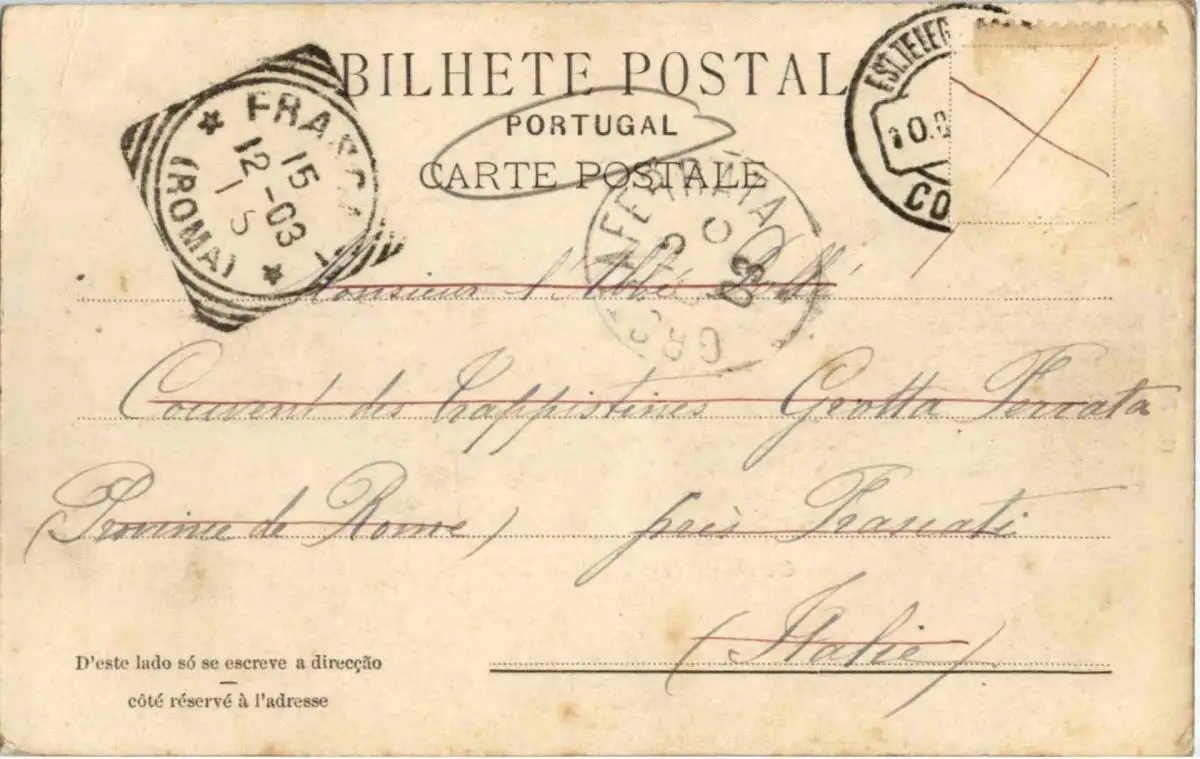 BILHETE POSTAL
PORTUGAL
CARTE POSTALE
FRASCATI
15
12-03
1 5
(ROMA)
EST. TELEG
CO
03
Monsieur l'Abbé
Couvent des Trappistines Grotta Ferrata
(Province de Rome) près Frascati
(Italie)
D'este lado só se escreve a direcção
côté réservé à l'adresse